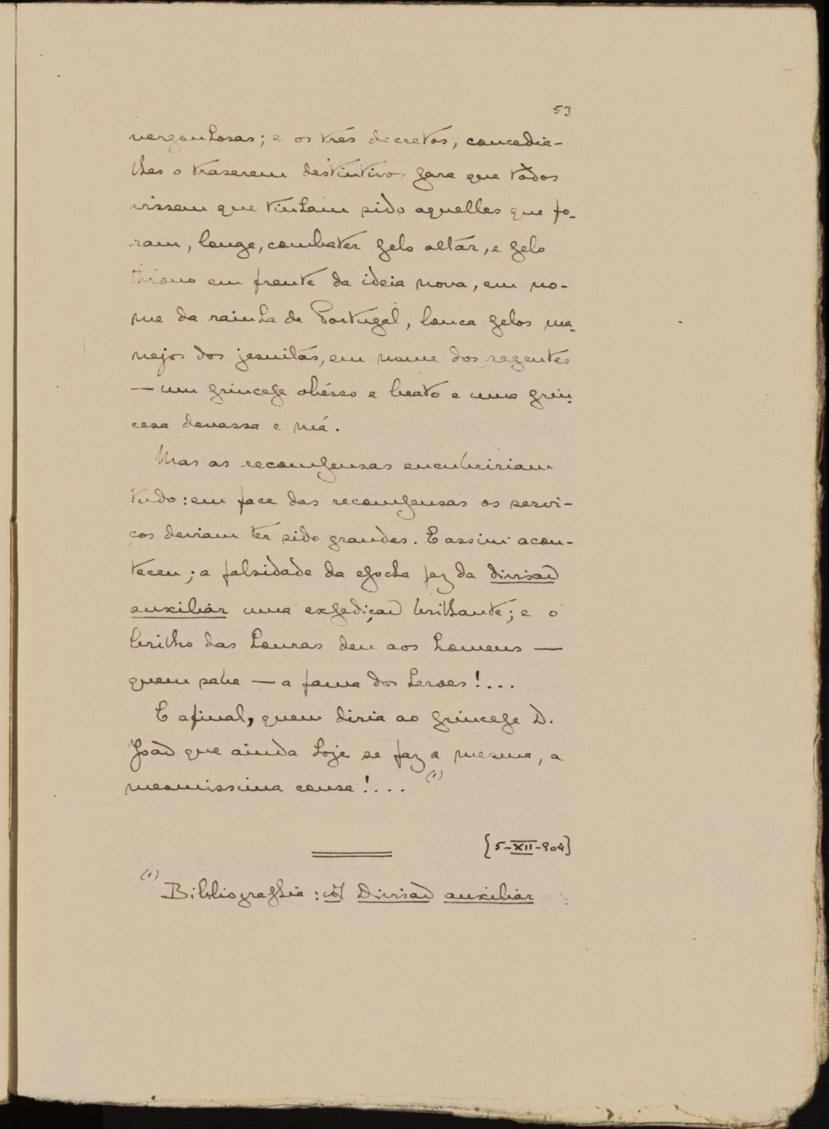 53
vergonhosas; e os três decretos, concedia-
lhes o traserem destintivos para que todos
vissem que tinham sido aquelles que fo-
ram, longe, combater pelo altar, e pelo
throno em frente da ideia nova, em no-
me da rainha de Portugal, louca pelos ma-
nejos dos jesuitas, em nome dos regentes
— um principe obésso e beato e uma prin-
cesa devassa e má.
Mas as recompensas encubririam
tudo: em face das recompensas os servi-
ços deviam ter sido grandes. E assim acon-
teceu; a falsidade da epocha fez da divisaõ
auxiliar uma expediçaõ brilhante; e o
brilho das honras deu aos homens —
quem sabe — a fama dos heroes!...
E afinal, quem diria ao principe D.
Joaõ que ainda hoje se faz a mesma, a
mesmissima cousa!... (1)
{5-XII-904}
(1) Bibliographia: A Divisaõ auxiliar